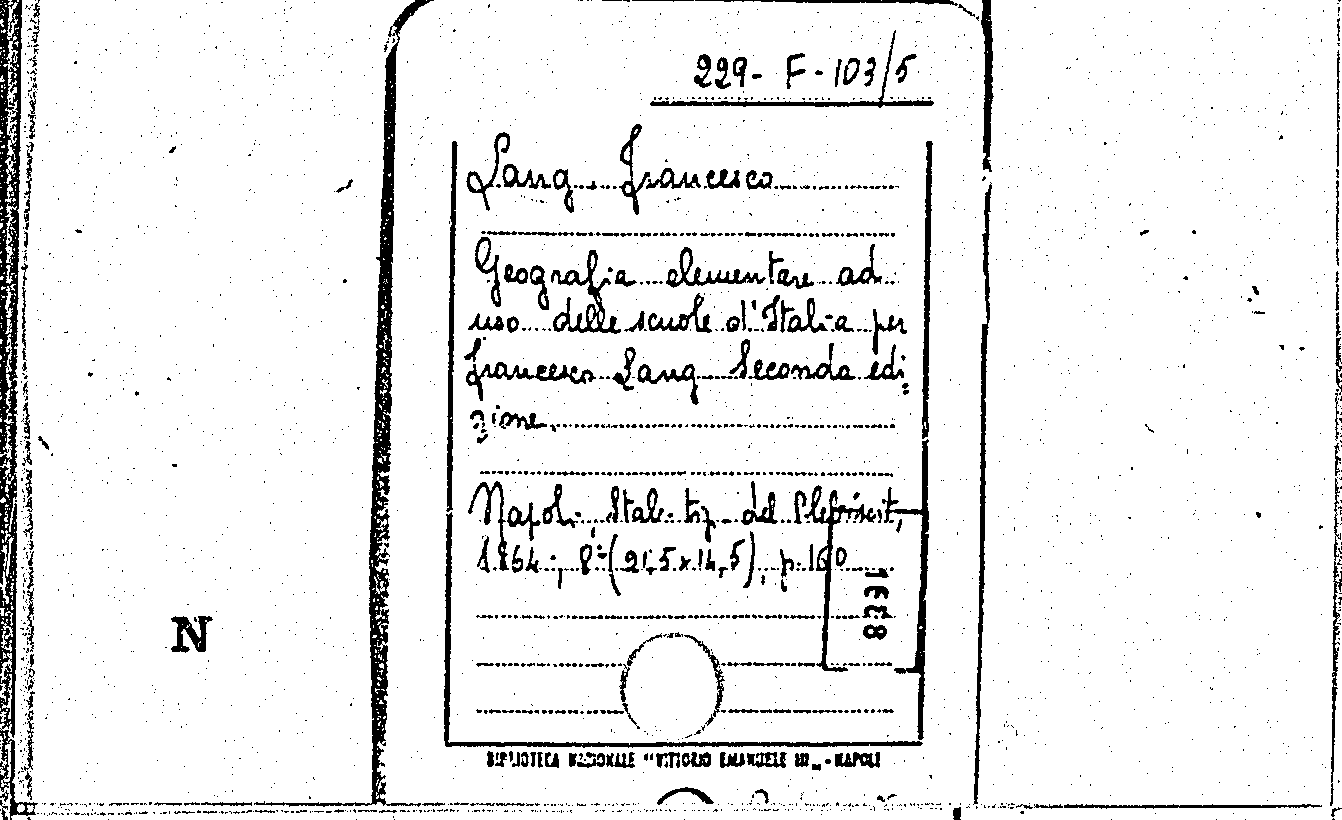 229- F-103/5
Lang. Francesco
Geografia elementare ad
uso delle scuole d'Italia per
Francesco Lang. Seconda edi=
zione.
Napoli, Stab. tip. del Plebiscit,
1864; 8º (21,5x14,5), p. 160
N
BIBLIOTECA NAZIONALE "VITTORIO EMANUELE III" - NAPOLI